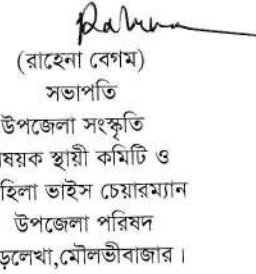 (রাহেনা বেগম)
সভাপতি
উপজেলা সংস্কৃতি
ষয়ক স্থায়ী কমিটি ও
হিলা ভাইস চেয়ারম্যান
উপজেলা পরিষদ
ড়লেখা,মৌলভীবাজার।